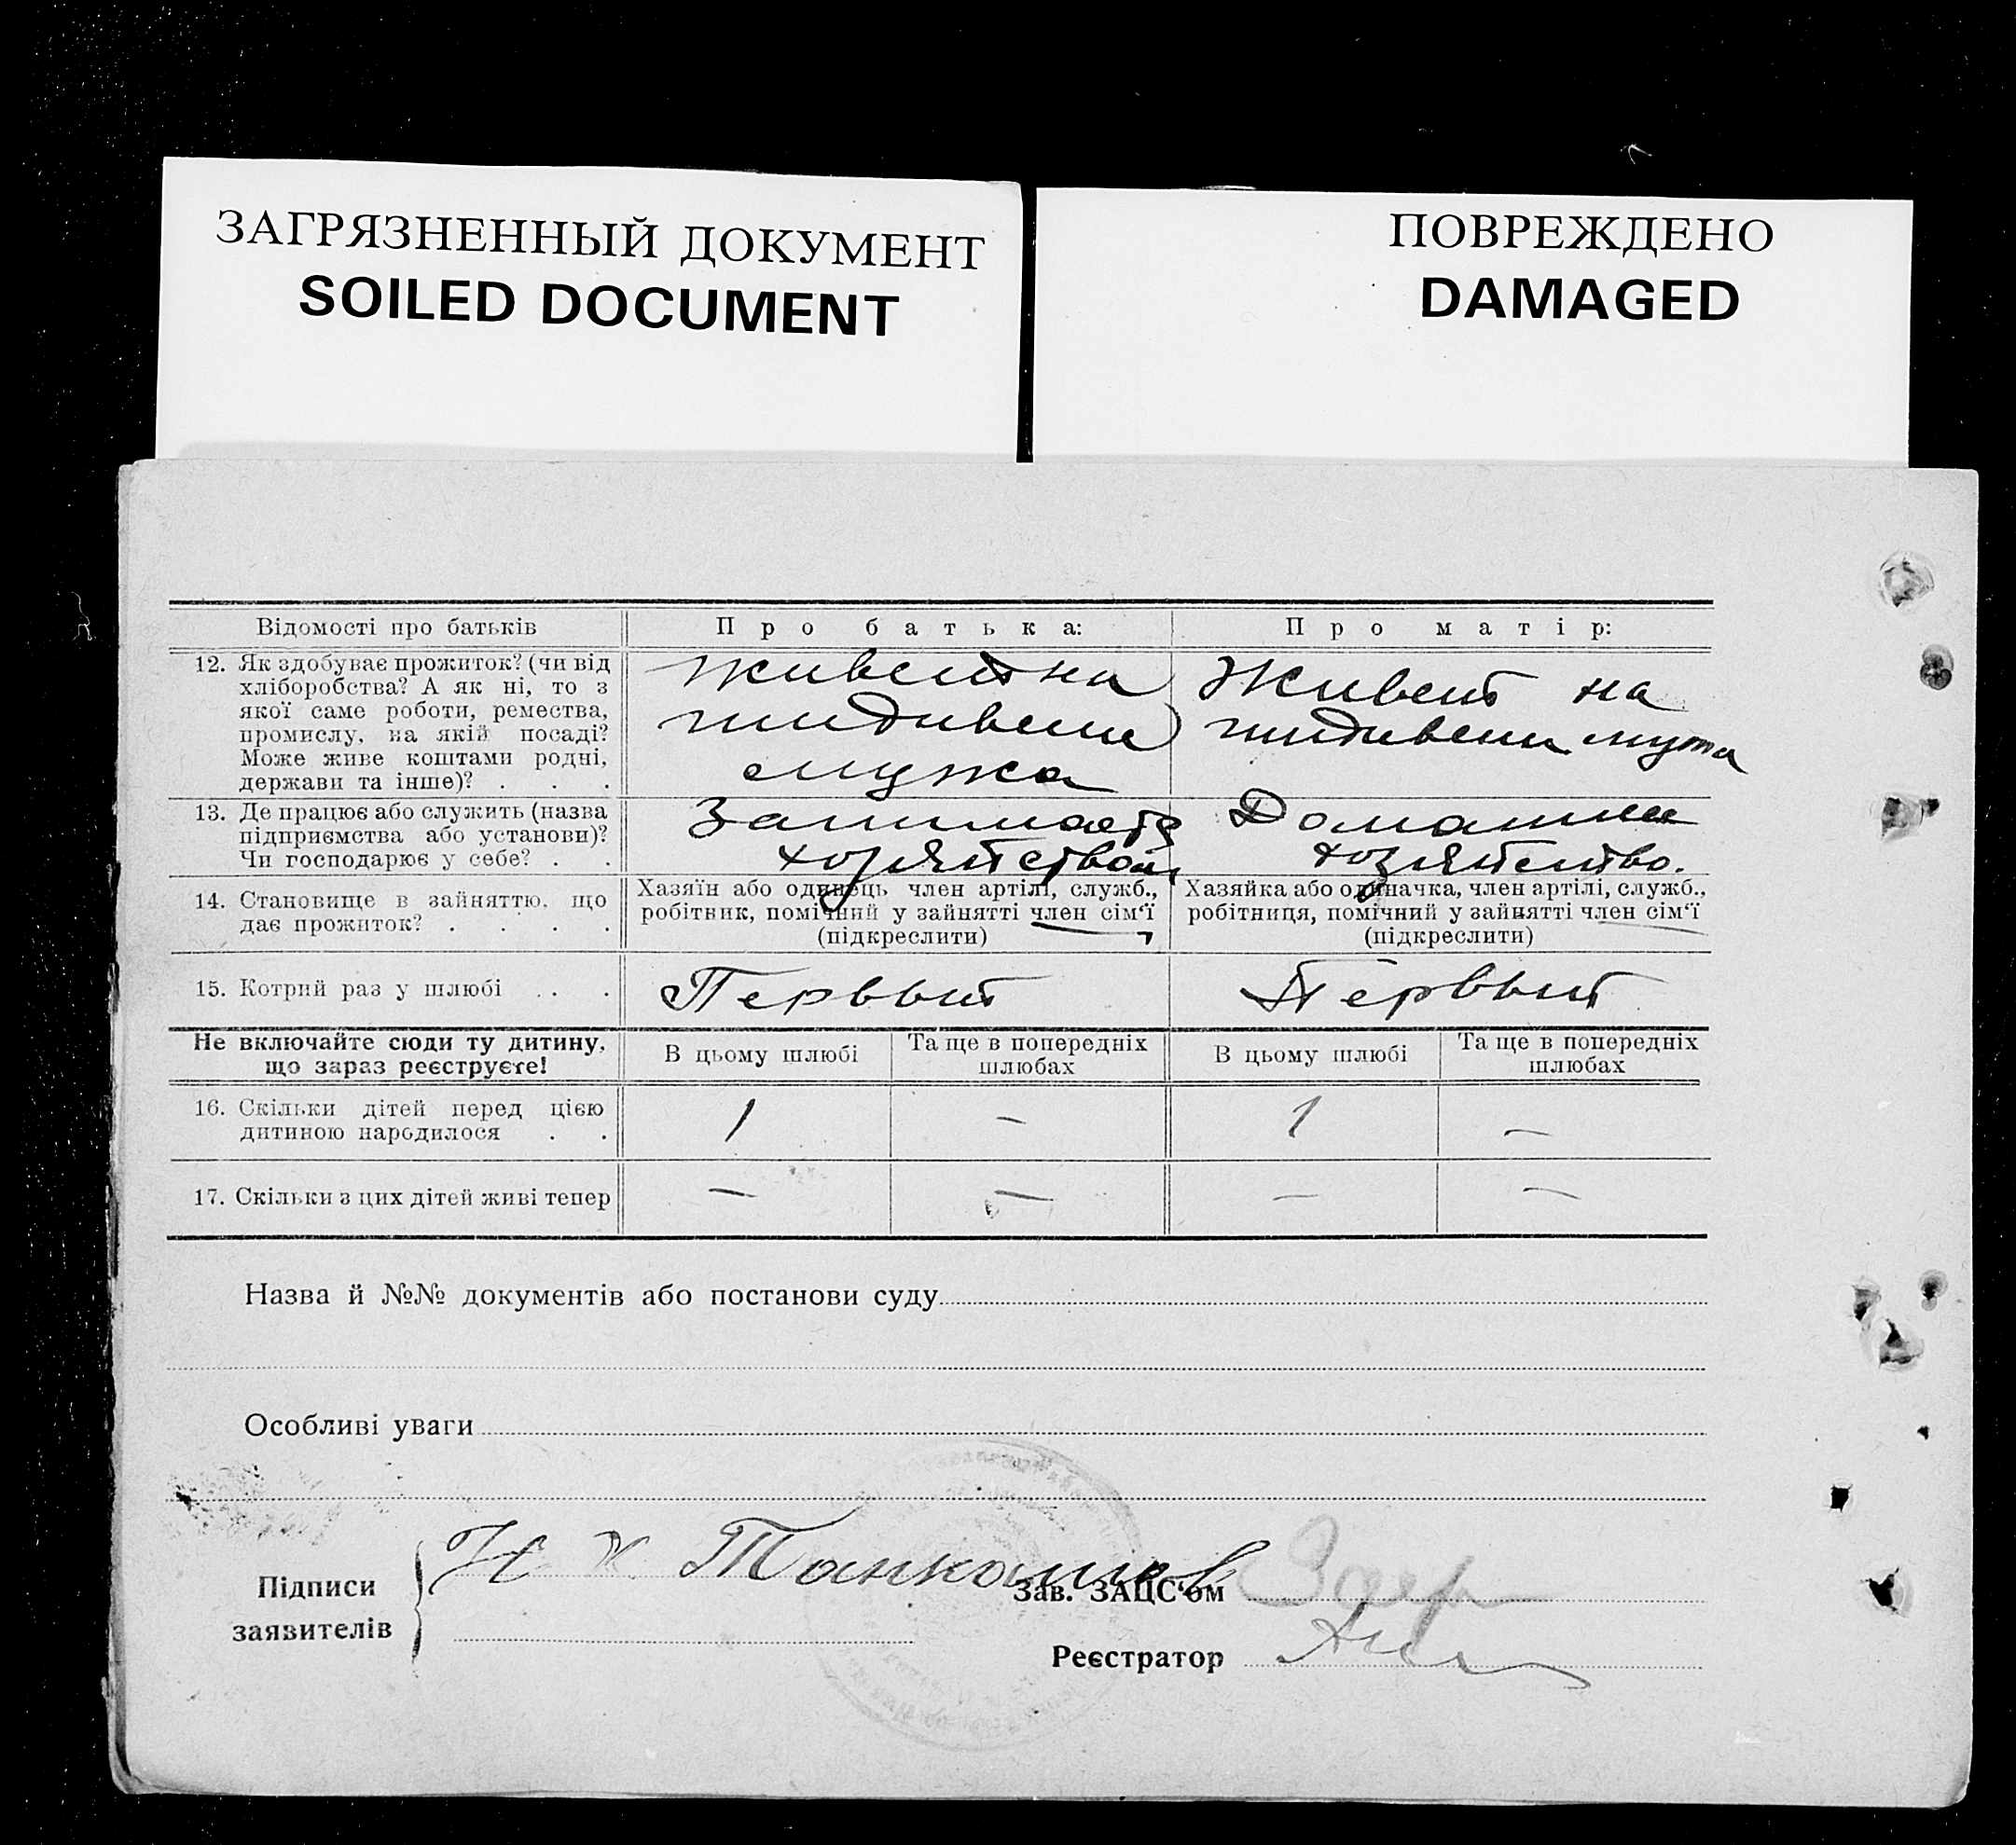 ЗАГРЯЗНЕННЫЙ ДОКУМЕНТ
SOILED DOCUMENT
ПОВРЕЖДЕНО
DAMAGED
Відомості про батьків
Про батька:
Про матір:
12. Як здобуває прожиток? (чи від
хліборобства? А як ні, то з
якої саме роботи, ремества,
промислу, на якій посаді?
Може живе коштами родні,
держави та інше)? . . .
Живет на
иждивении
мужа
Живет на
иждивении мужа
13. Де працює або служить (назва
підприємства або установи)?
Чи господарює у себе? . .
Занимается
хозяйством
Домашнее
хозяйство.
14. Становище в зайняттю, що
дає прожиток? . . . .
Хазяїн або одинець член артілі, служб.,
робітник, помічний у зайнятті член сім‘ї
(підкреслити)
Хазяйка або одиначка, член артілі, служб.,
робітниця, помічний у зайнятті член сім‘ї
(підкреслити)
15. Котрий раз у шлюбі . . .
Первый
Первый
Не включайте сюди ту дитину,
що зараз реєструєте!
В цьому шлюбі
Та ще в попередніх
шлюбах
В цьому шлюбі
Та ще в попередніх
шлюбах
16. Скільки дітей перед цією
дитиною народилося . .
1 — 1 —
17. Скільки з цих дітей живі тепер
— — — —
Назва й №№ документів або постанови суду
Особливі уваги
Підписи
заявителів
Зав. ЗАЦС‘ом
Реєстратор